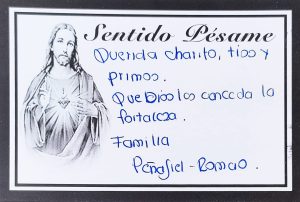 Sentido Pésame
Querida charito, tios y
primos.
Que Dios los conceda la
fortaleza.
Familia
Peñafiel - Borrero.